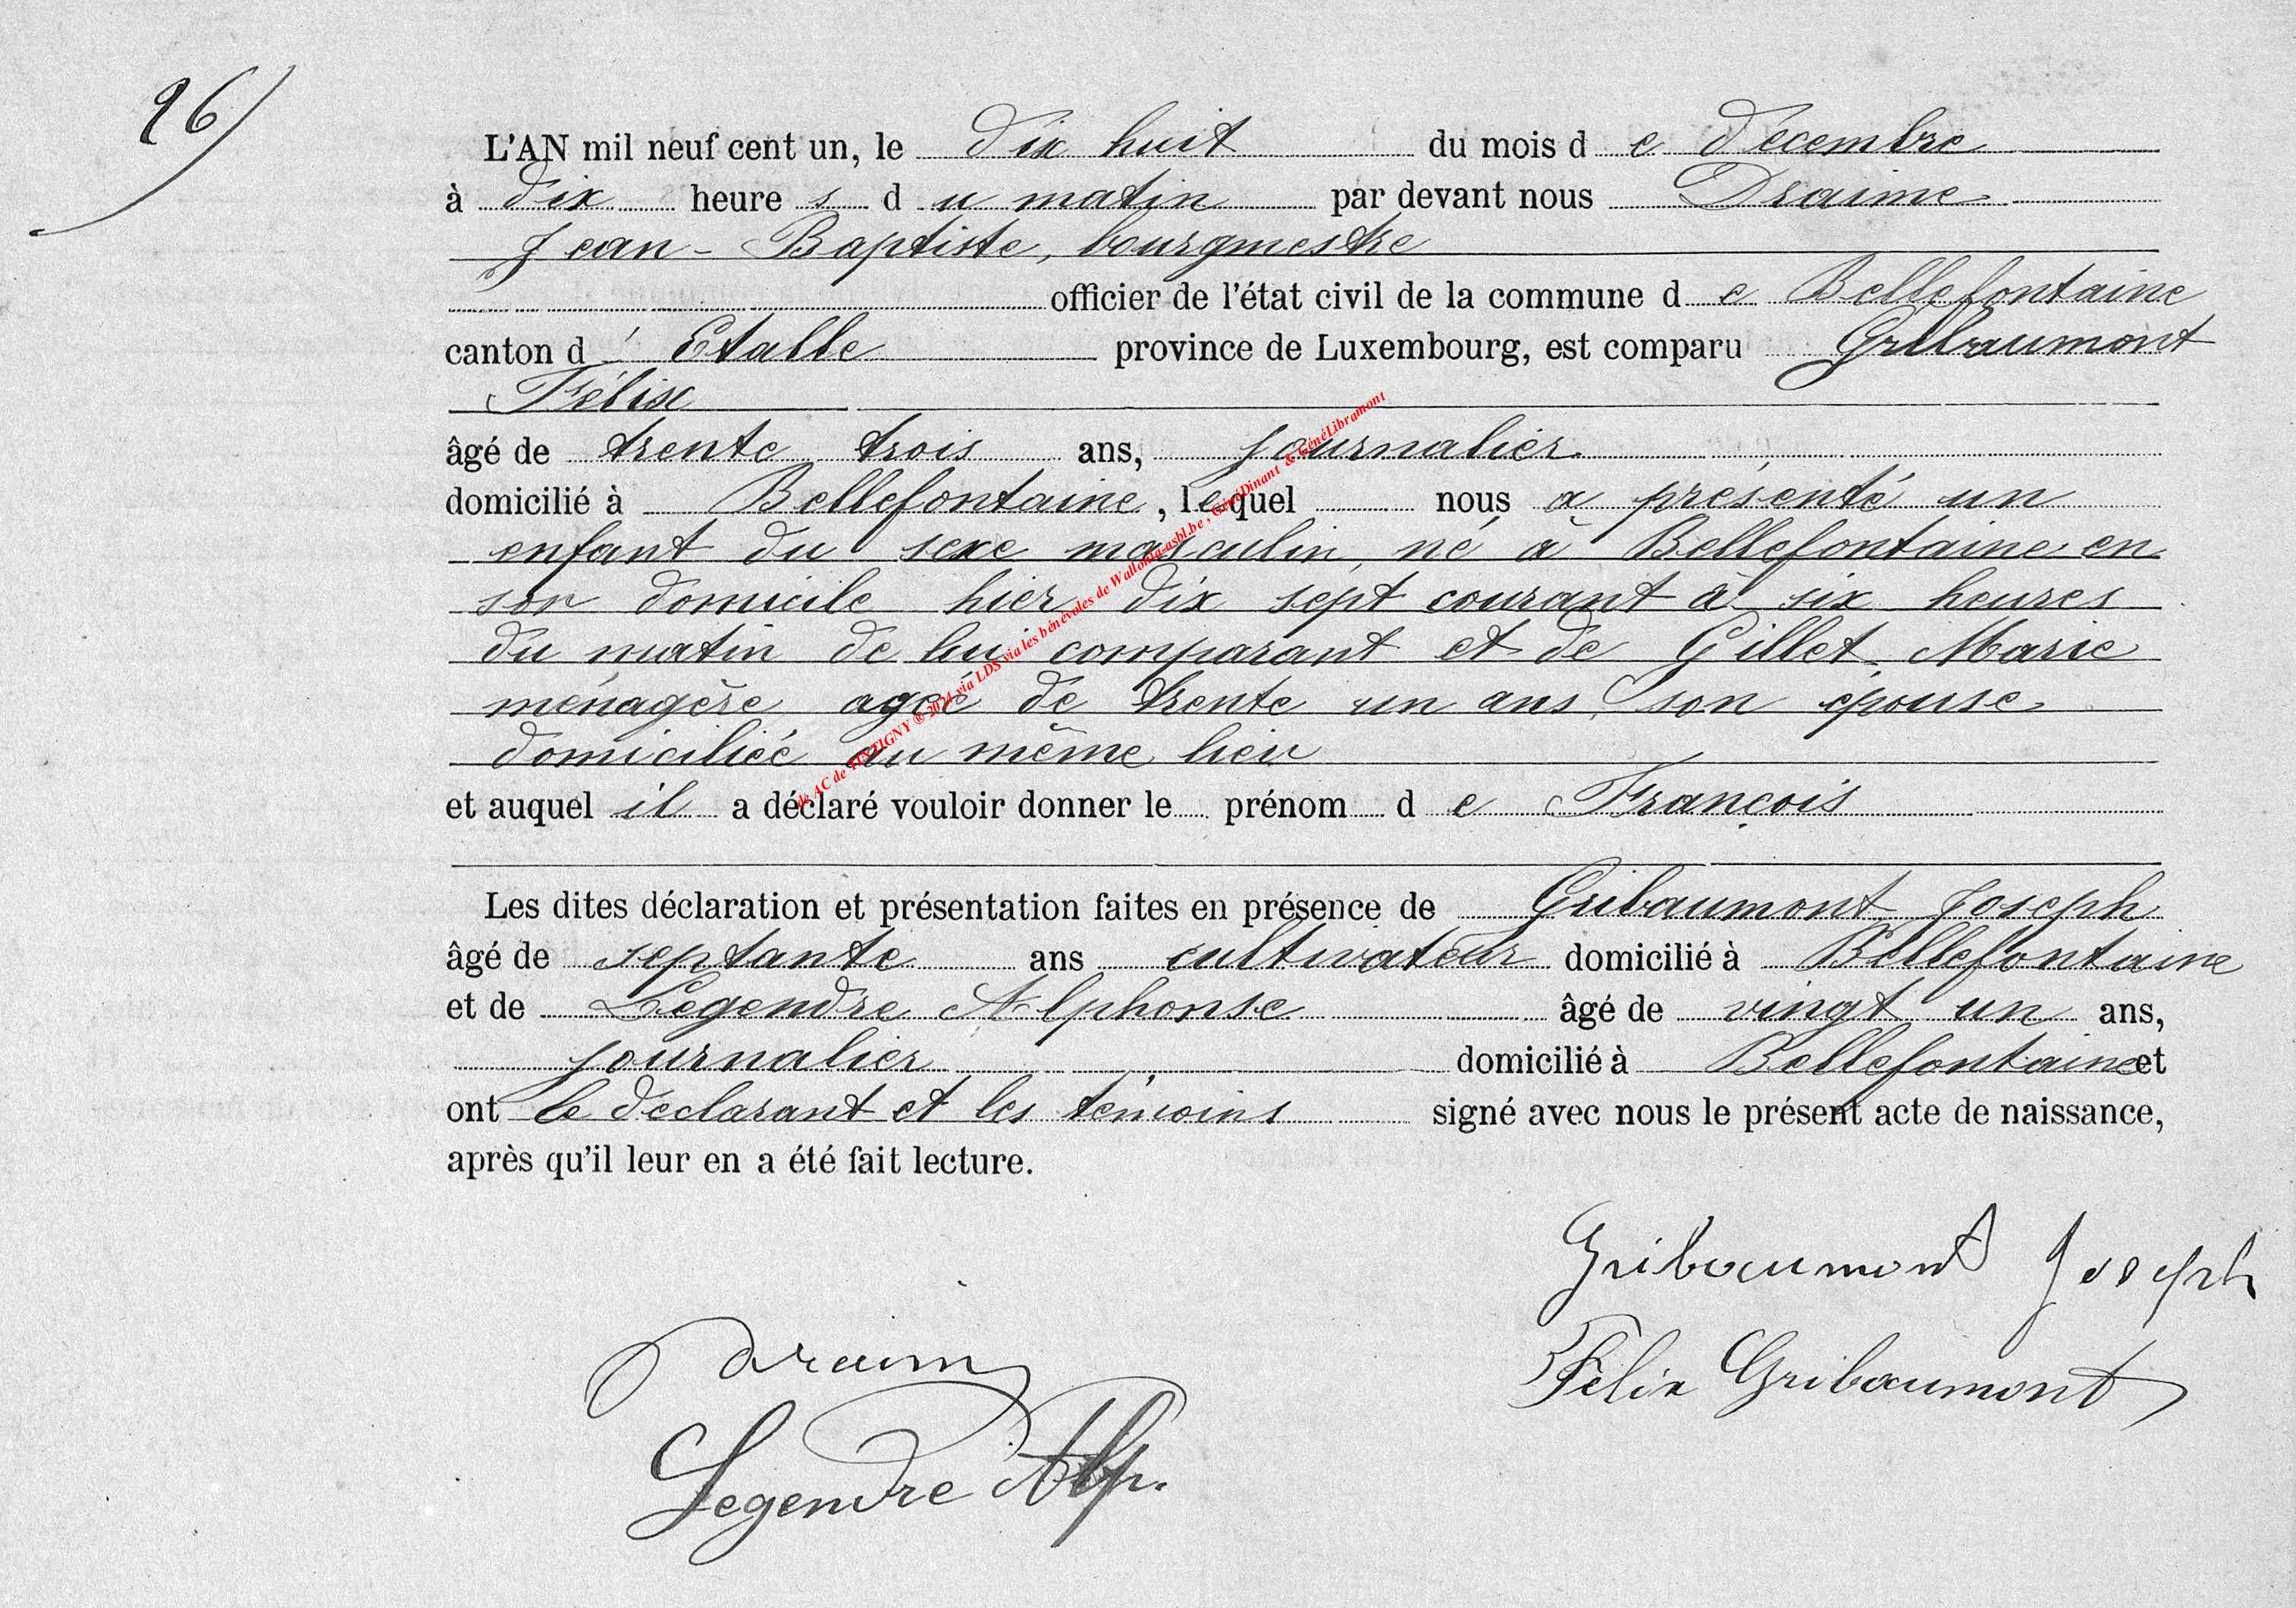 26)
L'AN mil neuf cent un, le dix huit du mois de décembre
à dix heures du matin par devant nous Draime
Jean-Baptiste, bourgmestre
officier de l'état civil de la commune de Bellefontaine
canton d'Etalle province de Luxembourg, est comparu Gribaumont
Félix
âgé de trente trois ans, journalier
domicilié à Bellefontaine, lequel nous a présenté un
enfant du sexe masculin, né à Bellefontaine en
son domicile hier dix sept courant à six heures
du matin de lui comparant et de Gillet Marie
ménagère, agée de trente un ans, son épouse
domiciliée au même lieu
et auquel il a déclaré vouloir donner le prénom de François
Les dites déclaration et présentation faites en présence de Gribaumont Joseph
âgé de septante ans cultivateur domicilié à Bellefontaine
et de Legendre Alphonse âgé de vingt un ans,
journalier domicilié à Bellefontaine et
ont le déclarant et les témoins signé avec nous le présent acte de naissance,
après qu'il leur en a été fait lecture.
Gribaumont Joseph
Draime
Félix Gribaumont
Legendre Alp.
de AC de TINTIGNY ® 2024 via LDS via les bénévoles de Wallonia-asbl.be, GénéDinant & GénéLibramont